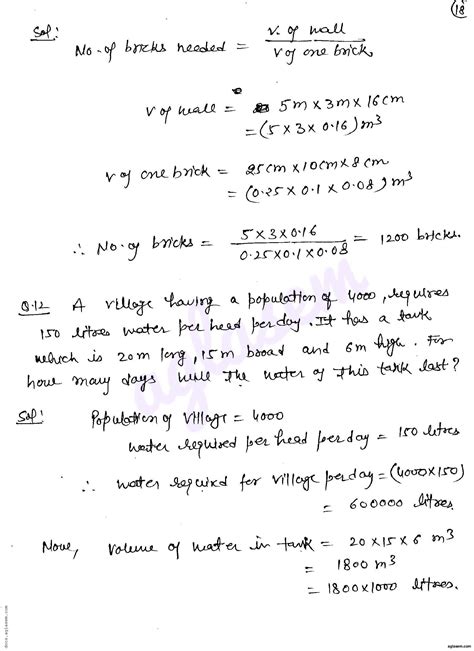 18
Sol: No. of bricks needed = V. of wall / V of one brick
V of wall = 5m × 3m × 16cm
= (5 × 3 × 0.16) m³
V of one brick = 25cm × 10cm × 8cm
= (0.25 × 0.1 × 0.08) m³
∴ No. of bricks = 5 × 3 × 0.16 / 0.25 × 0.1 × 0.08 = 1200 bricks.
Q.12 A village having a population of 4000, requires
150 litres water per head per day. It has a tank
which is 20m long, 15m broad and 6m high. For
how many days will the water of this tank last?
Sol: Population of village = 4000
water required per head per day = 150 litres
∴ water required for village per day = (4000×150)
= 600000 litres.
Now, volume of water in tank = 20 × 15 × 6 m³
= 1800 m³
= 1800×1000 litres.
aglasem
docs.aglasem.com
aglasem.com